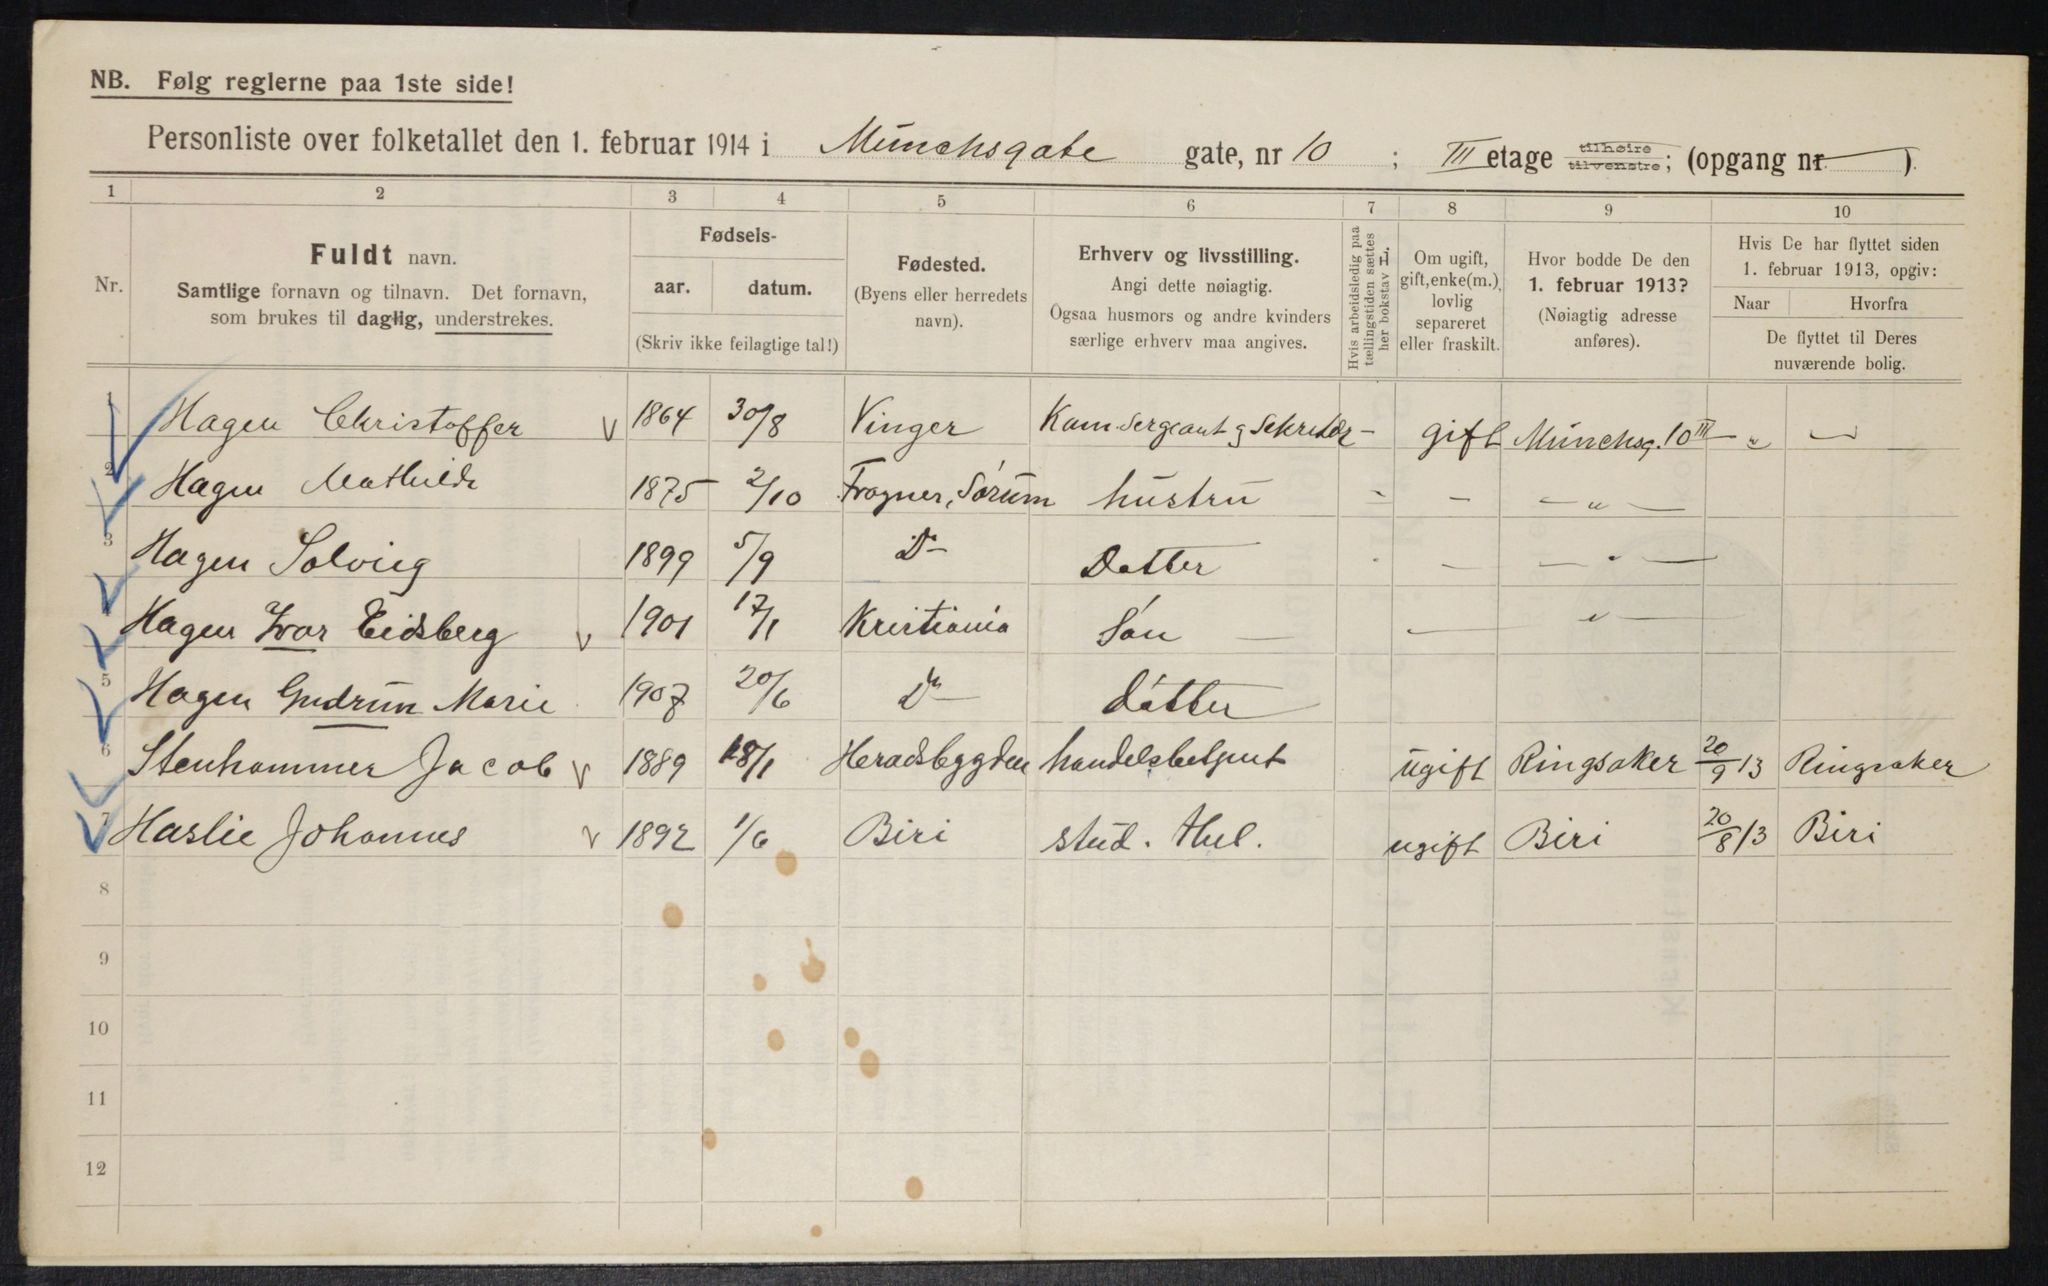 NB. Følg reglerne paa 1ste side!
Personliste over folketallet den 1. februar 1914 i Münchsgate gate, nr 10 ; III etage tilhøire tilvenstre; (opgang nr. — ).
1 2 3 4 5 6 7 8 9 10
Nr.
Fuldt navn.
Samtlige fornavn og tilnavn. Det fornavn,
som brukes til daglig, understrekes.
Fødsels-
aar. datum.
(Skriv ikke feilagtige tal!)
Fødested.
(Byens eller herredets
navn).
Erhverv og livsstilling.
Angi dette nøiagtig.
Ogsaa husmors og andre kvinders
særlige erhverv maa angives.
Hvis arbeidsledig paa
tællingstiden sættes
her bokstav L.
Om ugift,
gift, enke(m.),
lovlig
separeret
eller fraskilt.
Hvor bodde De den
1. februar 1913?
(Nøiagtig adresse
anføres).
Hvis De har flyttet siden
1. februar 1913, opgiv:
Naar Hvorfra
De flyttet til Deres
nuværende bolig.
1 Hagen Christoffer V 1864 30/8 Vinger Kam. Sergeant g Sekretær – gift Münchsg. 10 III – „ —
2 Hagen Mathilde 1875 2/10 Frogner, Sørum hustru - – – „ —
3 Hagen Solveig 1899 5/9 D– Datter — — „ —
4 Hagen Ivar Eidsberg V 1901 17/1 Kristiania Søn — — — „ —
5 Hagen Gudrun Marie 1907 20/6 D– datter
6 Stenhammer Jacob V 1889 18/1 Heradsbygden handelsbetjent ugift Ringsaker 20/9 13 Ringsaker
7 Haslie Johannes V 1892 1/6 Biri stud. theol. ugift Biri 20/8 13 Biri
8
9
10
11
12